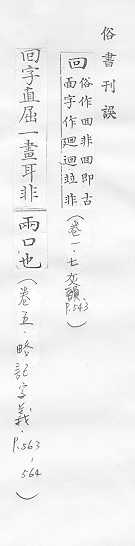 俗書刊誤
回俗作囬非囬即古
面字作廻迴竝非
(卷一.七灰韻.P.543)
回字直屈一畫耳非
兩口也(卷五.略記字義.P.563,564)